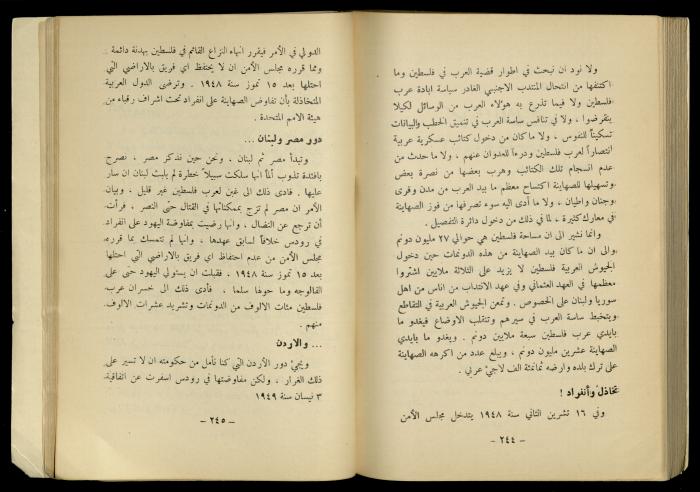 ولا نود ان نبحث في اطوار قضية العرب في فلسطين وما
اكتنفها من انتحال المنتدب الاجنبي الغادر سياسة ابادة عرب
فلسطين ولا فيما تذرع به هؤلاء العرب من الوسائل لكيلا
ينقرضوا ، ولا في تنافس ساسة العرب في تنميق الخطب والبيانات
تسكيناً للنفوس ، ولا ما كان من دخول كتائب عسكرية عربية
انتصاراً لعرب فلسطين ودرءاً للعدوان عنهم ، ولا ما حدث من
عدم انسجام تلك الكتائب وهرب بعضها من نصرة بعض
وتسهيلها للصهاينة اكتساح معظم ما بيد العرب من مدن وقرى
وجنان واطيان ، ولا ما أدى اليه سوء تصرفها من فوز الصهاينة
في معارك كثيرة ، لما في ذلك من دخول دائرة التفصيل .
وانما نشير الى ان مساحة فلسطين هي حوالي ٢٧ مليون دونم
والى ان ما كان بيد الصهاينة من هذه الدونمات حين دخول
الجيوش العربية فلسطين لا يزيد على الثلاثة ملايين اشتروا
معظمها في العهد العثماني وفي عهد الانتداب من اناس من اهل
سوريا ولبنان على الخصوص . وتمعن الجيوش العربية في التقاطع
ويتخبط ساسة العرب في سيرهم وتنقلب الاوضاع فيغدو ما
بايدي عرب فلسطين سبعة ملايين دونم . ويغدو ما بايدي
الصهاينة عشرين مليون دونم ، ويبلغ عدد من اكرهه الصهاينة
على ترك بلده وارضه ثمانمئة الف لاجيء عربي .
تخاذل وأنفراد !
وفي ١٦ تشرين الثاني سنة ١٩٤٨ يتدخل مجلس الأمن
- ٢٤٤ -
الدولي في الأمر فيقرر انهاء النزاع القائم في فلسطين بهدنة دائمة .
ومما قرره مجلس الأمن ان لا يحتفظ اي فريق بالاراضي التي
احتلها بعد ١٥ تموز سنة ١٩٤٨ . وترضى الدول العربية
المتخاذلة بأن تفاوض الصهاينة على انفراد تحت اشراف رقباء من
هيئة الامم المتحدة .
دور مصر ولبنان ...
وتبدأ مصر ثم لبنان ، ونحن حين نذكر مصر ، نصرح
بافئدة تذوب ألماً انها سلكت سبيلاً خطرة لم يلبث لبنان ان سار
عليها . فادى ذلك الى غبن لعرب فلسطين غير قليل . وبيان
الأمر ان مصر لم تزج بممكناتها في القتال حتى النصر . فرأت
أن ترجع عن النضال ، وانها رضيت بمفاوضة اليهود على انفراد
في رودس خلافاً لسابق عهدها ، وانها لم تتمسك بما قرره
مجلس الأمن من عدم احتفاظ اي فريق بالاراضي التي احتلها
بعد ١٥ تموز سنة ١٩٤٨ . فقبلت ان يستولي اليهود حتى على
الفالوجه وما حولها سلما ، فأدى ذلك الى خسران عرب
فلسطين مئات الالوف من الدونمات وتشريد عشرات الالوف
منهم .
... والأردن
ويجيء دور الأردن التي كنا نأمل من حكومته ان لا تسير على
ذلك الغرار ، ولكن مفاوضتها في رودس اسفرت عن اتفاقية
٣ نيسان سنة ١٩٤٩
- ٢٤٥ -